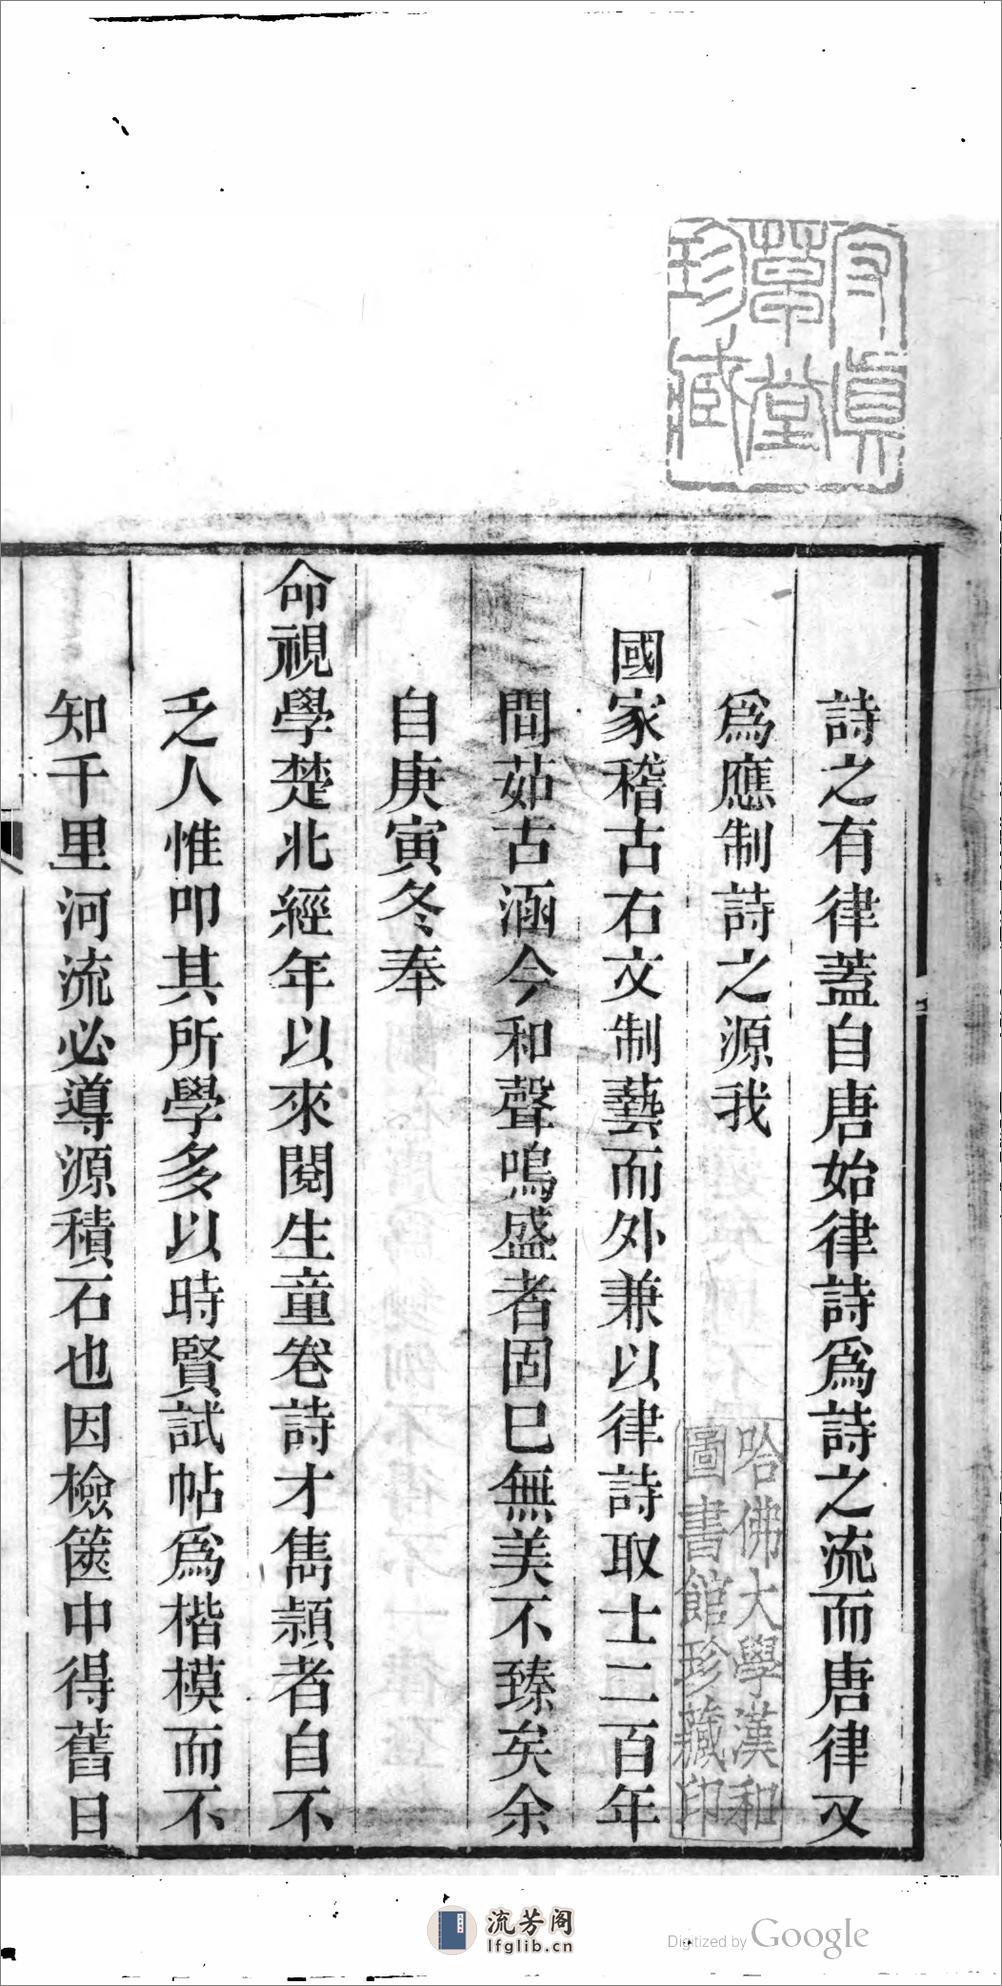 詩之有律蓋自唐始律詩爲詩之流而唐律又
爲應制詩之源我
國家稽古右文制藝而外兼以律詩取士二百年
間茹古涵今和聲鳴盛者固已無美不臻矣余
自庚寅冬奉
命視學楚北經年以來閱生童卷詩才雋穎者自不
乏人惟叩其所學多以時賢試帖爲楷模而不
知千里河流必導源積石也因檢篋中得舊日
草堂
珍藏
哈佛大學漢和
圖書館珍藏印
流芳阁
lfglib.cn
Digitized by Google